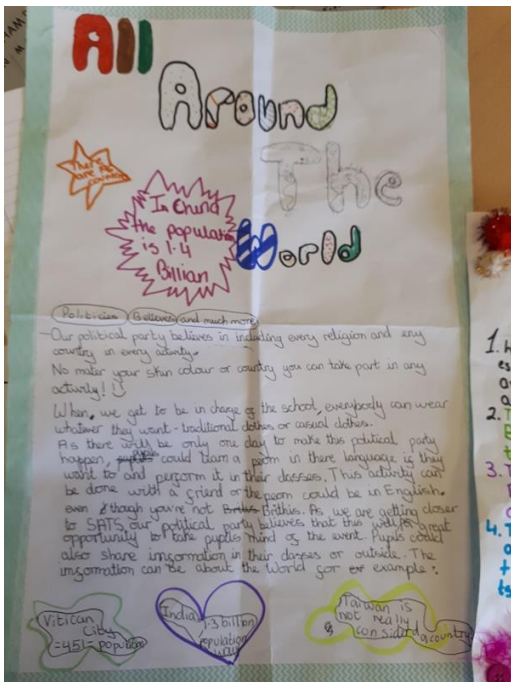 All
Around
The
World
There
are
In China
the population
is 1.4
Billian
Politicism Believes and much more
Our political party believes in including every religion and any
country in every activity.
No mater your skin colour or country you can take part in any
activity!
When, we get to be in charge of the school, everybody can wear
whatever they want - traditional clothes or casual clothes.
As there will be only one day to make this political party
happen, pupils could learn a peom in there language if they
want to and perform it in their classes. This activity can
be done with a friend or the peom could be in English.
even though you're not Brithis. As, we are getting closer
to SATS, our political party believes that this great
opportunity to take pupils mind of the event. Pupils could
also share imformation in their classes or outside. The
imformation can be about the World for example :
Vitican
City
=451= population
India
1.3 billion
population
Taiwan is
not really
considerd a country
1.
2.
3.
4.